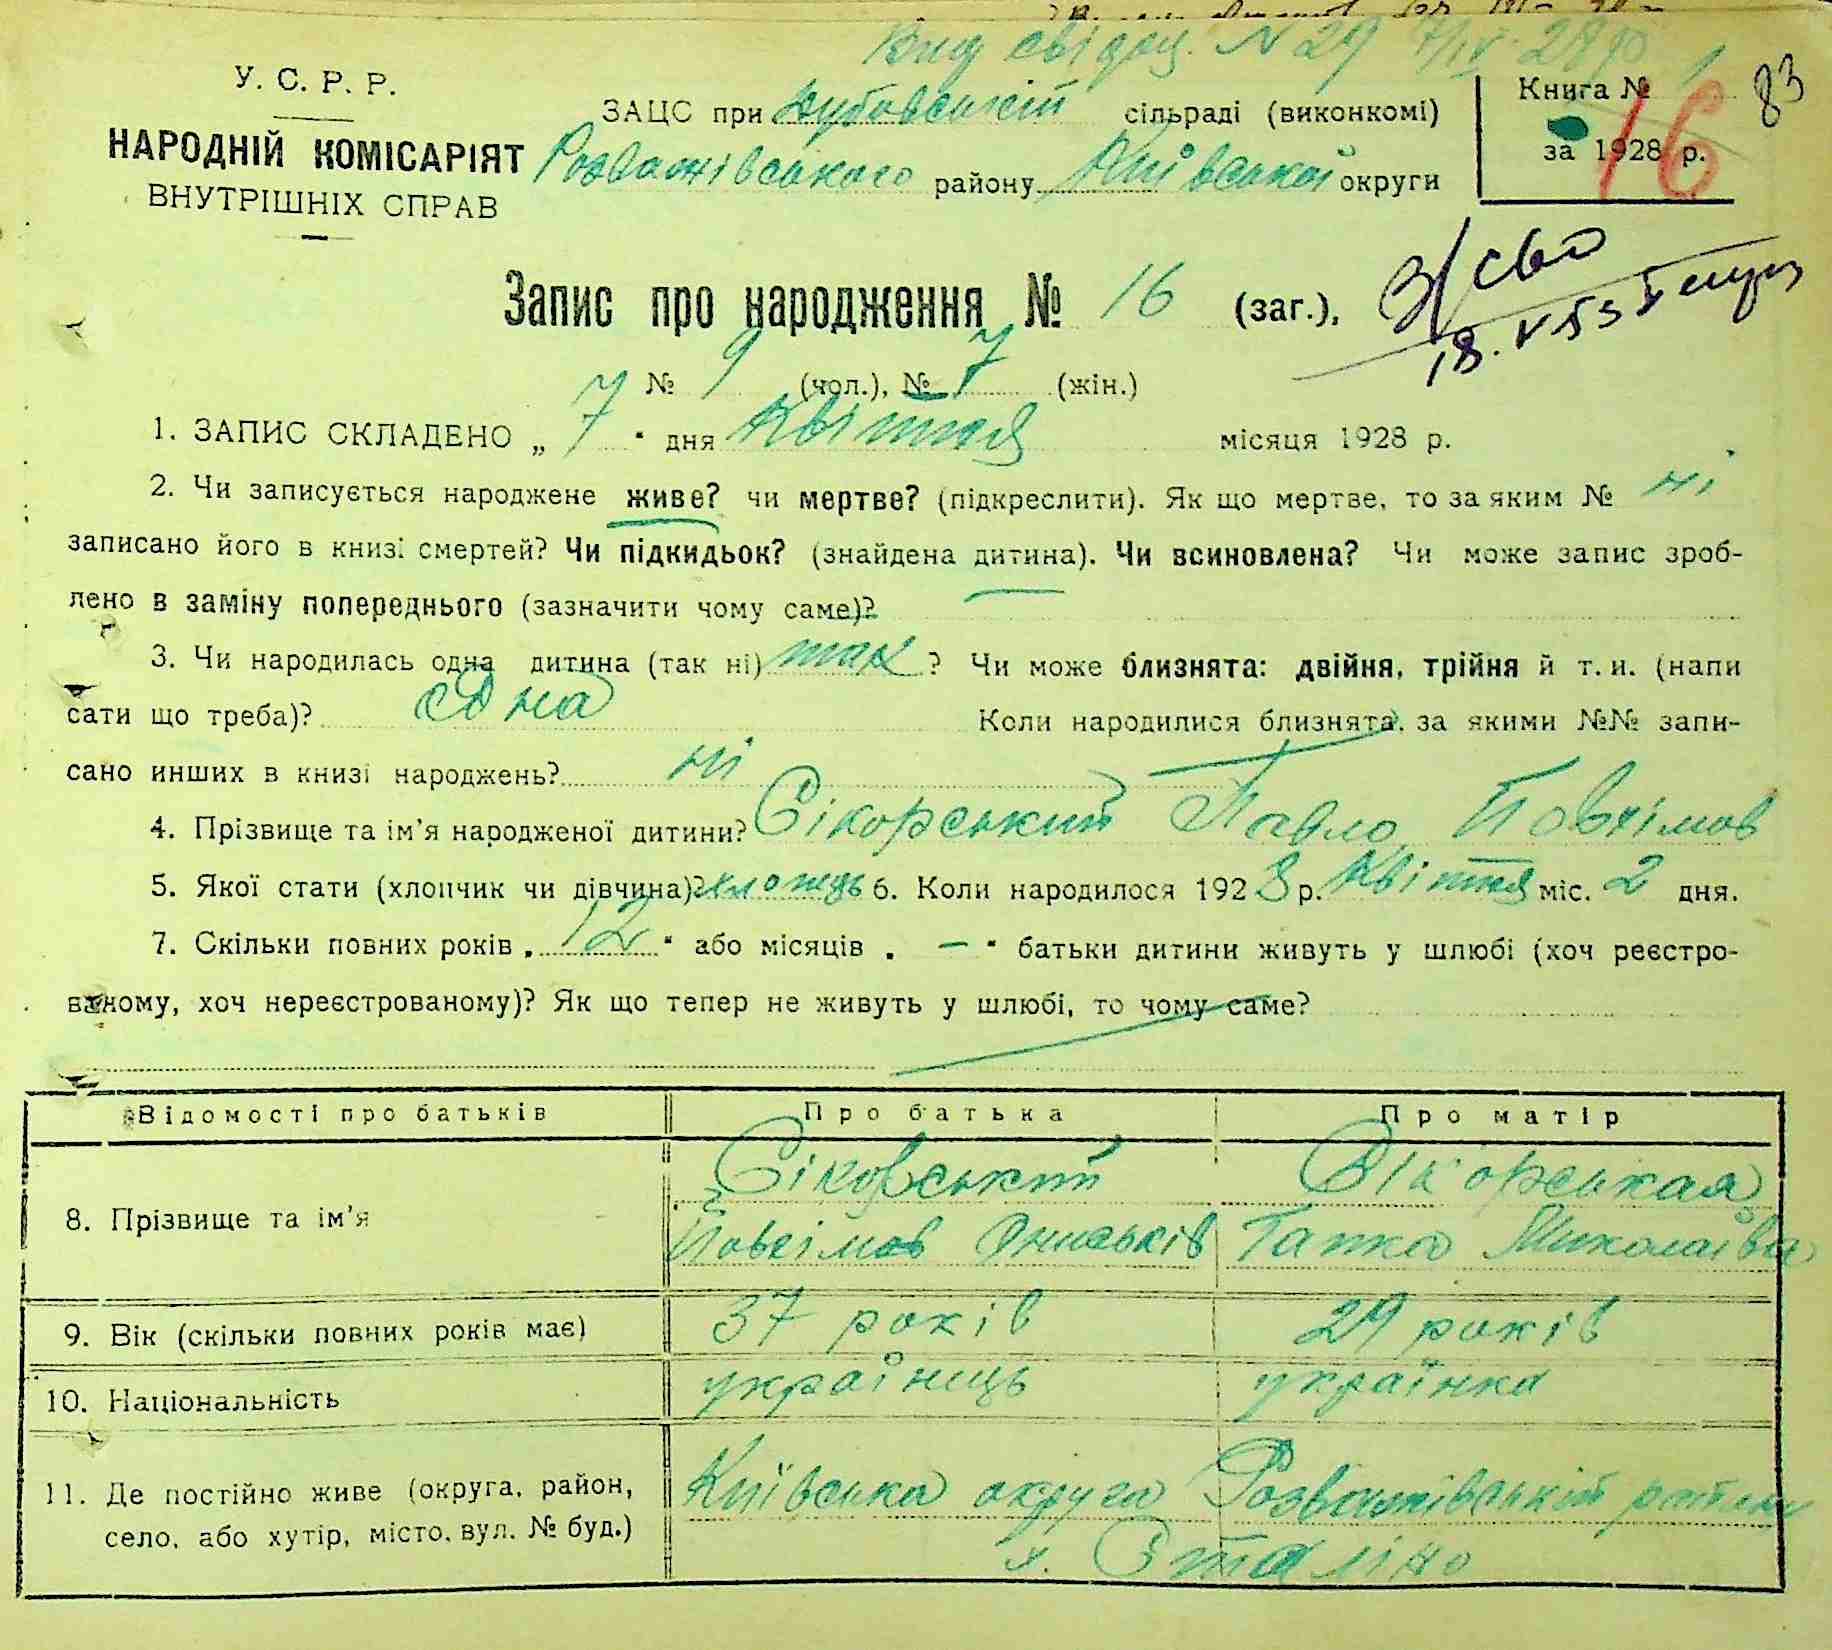 Вид свідоц. N 29 7/IV-28 р
У. С. Р. Р.
НАРОДНІЙ КОМІСАРІЯТ
ВНУТРІШНІХ СПРАВ
ЗАЦС при сільраді (виконкомі)
Розважівського району Київської округи
Книга № 1
за 1928 р.
16
83
Запис про народження № 16 (заг.),
№ 9 (чол.), № 7 (жін.)
18.V 55
1. ЗАПИС СКЛАДЕНО „ 7 " дня Квітня місяця 1928 р.
2. Чи записується народжене живе? чи мертве? (підкреслити). Як що мертве, то за яким № ні
записано його в книзі смертей? Чи підкидьок? (знайдена дитина). Чи всиновлена? Чи може запис зроб-
лено в заміну попереднього (зазначити чому саме)?
3. Чи народилась одна дитина (так ні) так ? Чи може близнята: двійня, трійня й т. и. (напи
сати що треба)? одна Коли народилися близнята, за якими №№ запи-
сано инших в книзі народжень? ні
4. Прізвище та ім'я народженої дитини? Сікорський Павло Йовхімов
5. Якої стати (хлопчик чи дівчина)? хлопець 6. Коли народилося 1928 р. Квітня міс. 2 дня.
7. Скільки повних років „ 12 " або місяців „ — " батьки дитини живуть у шлюбі (хоч реєстро-
ваному, хоч нереєстрованому)? Як що тепер не живуть у шлюбі, то чому саме?
Відомості про батьків Про батька Про матір
8. Прізвище та ім'я Сікорський Сікорськая
Йовхімов Ониськів Гапка Миколаївна
9. Вік (скільки повних років має) 37 років 29 років
10. Національність українець українка
11. Де постійно живе (округа, район, Київська округа Розважівський район
село, або хутір, місто, вул. № буд.) х. Сталіно